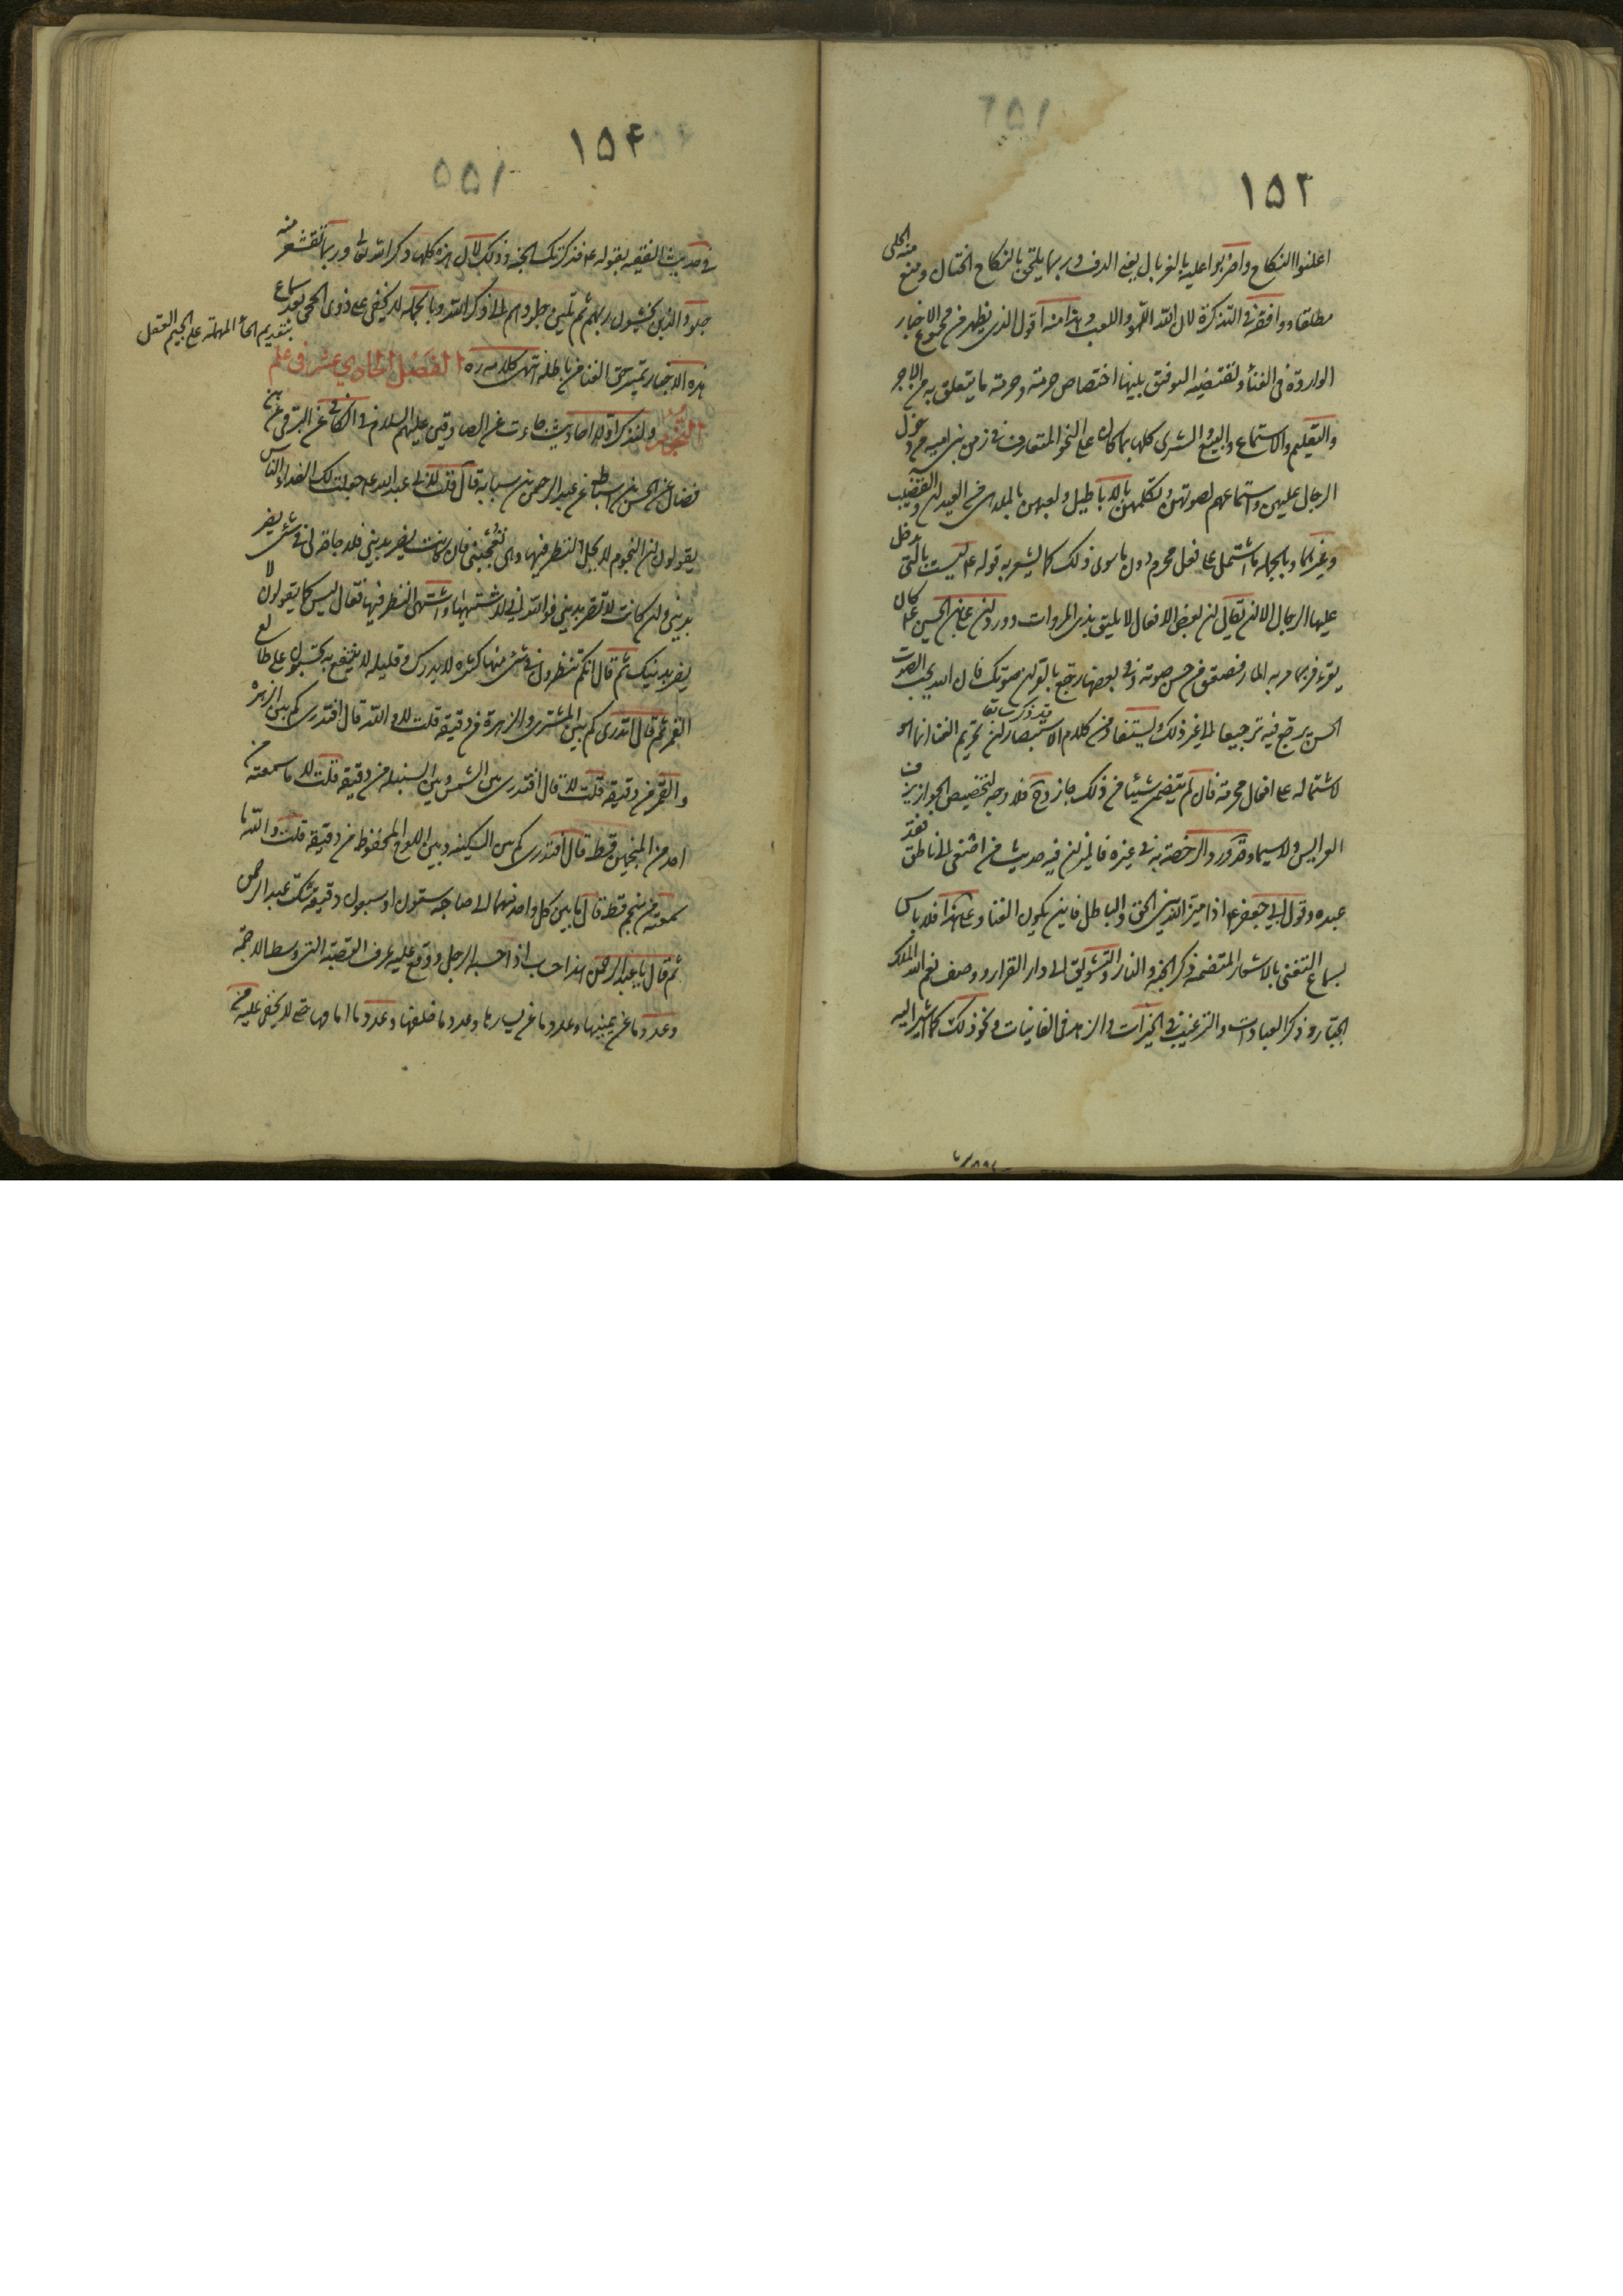 ١٥٢
اعلنوا النكاح واضربوا عليه بالغربال يعني الدف وربما يلحق بالنكاح الختان ومنع منه الحلي
مطلقا ووافقه في التذكرة لان الله ذم اللهو واللعب وهذا منه اقول الذي يظهر من مجموع الاخبار
الواردة في الغناء وتقتضيه التوفيق بينها اختصاص حرمته وحرمة ما يتعلق به من الاجر
والتعليم والاستماع والبيع والشرى كلها بما كان على النحو المتعارف في زمن بني امية من دخول
الرجال عليهن واستماعهم لصوتهن وتكلمهن بالاباطيل ولعبهن بالملاهي من العيدان والقضيب
وغيرهما وبالجملة ما اشتمل على فعل محرم دون ما سوى ذلك كما يشعر به قوله ع ليست بالتي يدخل
عليها الرجال الا ان يقال ان بعض الافعال لا يليق بذي المروات وورد ان علي بن الحسين ع كان
يقرء فربما مر به المار فصعق من حسن صوته وفي بعضها رجع بالقران صوتك فان الله يحب الصوت
الحسن يرجع فيه ترجيعا الى غير ذلك ويستفاد من كلام الاستبصار ان تحريم الغنا انما هو
وقد ذكر سابقا
لاشتماله على افعال محرمة فان لم يتضمن شيئا من ذلك جاز و ح فلا وجه لتخصيص الجواز بزف
العرايس ولا سيما وقد ورد الرخصة به في غيره فانظر ان فيه حديث من اصغى الى ناطق فقد
عبده وقول ابي جعفر ع اذا ميز الله بين الحق والباطل فاين يكون الغنا وعلى هذا فلا باس
بسماع التغني بالاشعار المتضمنة ذكر الجنة والنار والتشويق الى دار القرار ووصف نعم الله الملك
الجبار وذكر العبادات والترغيب في الخيرات والزهد في الفانيات ونحو ذلك كما اشير اليه
١٥۴
في حديث الفقيه بقوله ع فذكرتك الجنة وذلك لان هذه كلها ذكر الله تعالى وربما تقشعر منه
جلود الذين يخشون ربهم ثم تلين جلودهم الى ذكر الله وبالجملة لا يخفى على ذوي الحجى بعد سماع
بتقديم الحاء المهملة على الجيم العقل
هذه الاخبار تميز حق الغنا من باطله انتهى كلامه ره الفصل الحادي عشر في علم
النجوم ولنذكر اولا احاديث جاءت عن الصادقين عليهم السلام في الكافي عن البرقي عن ابن
فضال عن الحسن بن اسباط عن عبد الرحمن بن سيابة قال قلت لابي عبد الله ع جعلت لك الفداء ان الناس
يقولون ان النجوم لا يحل النظر فيها وهي تعجبني فان كانت يضر بديني فلا حاجة لي في شيء يضر
بديني وان كانت لا تضر بديني فوالله اني لاشتهيها واشتهي النظر فيها فقال ليس كما يقولون لا
يضر بدينك ثم قال انكم تنظرون في شيء منها كثيره لا يدرك وقليله لا ينتفع به تحسبون على طالع
القمر ثم قال اتدري كم بين المشتري والزهرة من دقيقة قلت لا والله قال افتدري كم بين الزهرة
والقمر من دقيقة قلت لا قال افتدري بين الشمس وبين السنبلة من دقيقة قلت لا ما سمعته من
احد من المنجمين قط قال افتدري كم بين السكينة وبين اللوح المحفوظ من دقيقة قلت والله ما
سمعته من منجم قط قال ما بين كل واحد منهما الى صاحبه ستون او سبعون دقيقة شك عبد الرحمن
ثم قال يا عبد الرحمن هذا حساب اذا حسبه الرجل ووقع عليه عرف القصبة التي وسط الاجمة
وعدد ما عن يمينها وعدد ما عن يسارها وعدد ما خلفها وعدد ما امامها حتى لا يخفى عليه من